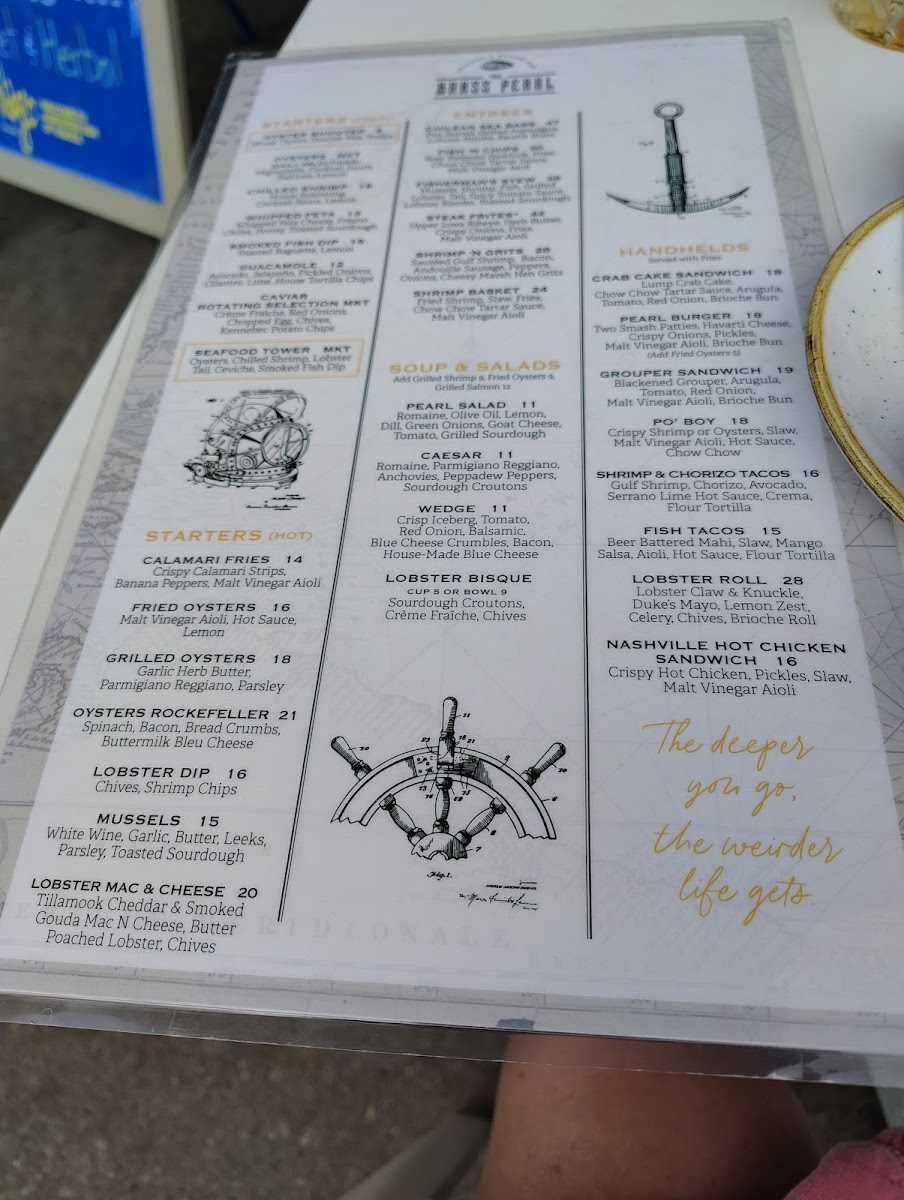 THE
BRASS PEARL
STARTERS (COLD)
OYSTER SHOOTER
OYSTERS MKT
CHILLED SHRIMP
Cocktail Sauce, Lemon
WHIPPED FETA 13
Honey, Toasted Sourdough
SMOKED FISH DIP 15
Toasted Baguette, Lemon
GUACAMOLE 12
Avocado, Jalapeño, Pickled Onions,
Cilantro, Lime, House Tortilla Chips
CAVIAR
ROTATING SELECTION MKT
Crème Fraîche, Red Onions,
Chopped Egg, Chives,
Kennebec Potato Chips
SEAFOOD TOWER MKT
Oysters, Chilled Shrimp, Lobster
Tail, Ceviche, Smoked Fish Dip
STARTERS (HOT)
CALAMARI FRIES 14
Crispy Calamari Strips,
Banana Peppers, Malt Vinegar Aioli
FRIED OYSTERS 16
Malt Vinegar Aioli, Hot Sauce,
Lemon
GRILLED OYSTERS 18
Garlic Herb Butter,
Parmigiano Reggiano, Parsley
OYSTERS ROCKEFELLER 21
Spinach, Bacon, Bread Crumbs,
Buttermilk Bleu Cheese
LOBSTER DIP 16
Chives, Shrimp Chips
MUSSELS 15
White Wine, Garlic, Butter, Leeks,
Parsley, Toasted Sourdough
LOBSTER MAC & CHEESE 20
Tillamook Cheddar & Smoked
Gouda Mac N Cheese, Butter
Poached Lobster, Chives
ENTRÉES
CHILEAN SEA BASS 47
FISH N CHIPS
Chow Chow Tartar Sauce,
Malt Vinegar Aioli
FISHERMAN'S STEW
Lobster Bisque, Toasted Sourdough
STEAK FRITES*
Crispy Onions, Fries,
Malt Vinegar Aioli
SHRIMP 'N GRITS 28
Sautéed Gulf Shrimp, Bacon,
Andouille Sausage, Peppers,
Onions, Cheesy Marsh Hen Grits
SHRIMP BASKET 24
Fried Shrimp, Slaw, Fries,
Chow Chow Tartar Sauce,
Malt Vinegar Aioli
SOUP & SALADS
Add Grilled Shrimp 9, Fried Oysters 9,
Grilled Salmon 12
PEARL SALAD 11
Romaine, Olive Oil, Lemon,
Dill, Green Onions, Goat Cheese,
Tomato, Grilled Sourdough
CAESAR 11
Romaine, Parmigiano Reggiano,
Anchovies, Peppadew Peppers,
Sourdough Croutons
WEDGE 11
Crisp Iceberg, Tomato,
Red Onion, Balsamic,
Blue Cheese Crumbles, Bacon,
House-Made Blue Cheese
LOBSTER BISQUE
CUP 5 OR BOWL 9
Sourdough Croutons,
Crème Fraîche, Chives
Fig. 1.
HANDHELDS
Served with Fries
CRAB CAKE SANDWICH 18
Lump Crab Cake,
Chow Chow Tartar Sauce, Arugula,
Tomato, Red Onion, Brioche Bun
PEARL BURGER 18
Two Smash Patties, Havarti Cheese,
Crispy Onions, Pickles,
Malt Vinegar Aioli, Brioche Bun
(Add Fried Oysters 5)
GROUPER SANDWICH 19
Blackened Grouper, Arugula,
Tomato, Red Onion,
Malt Vinegar Aioli, Brioche Bun
PO' BOY 18
Crispy Shrimp or Oysters, Slaw,
Malt Vinegar Aioli, Hot Sauce,
Chow Chow
SHRIMP & CHORIZO TACOS 16
Gulf Shrimp, Chorizo, Avocado,
Serrano Lime Hot Sauce, Crema,
Flour Tortilla
FISH TACOS 15
Beer Battered Mahi, Slaw, Mango
Salsa, Aioli, Hot Sauce, Flour Tortilla
LOBSTER ROLL 28
Lobster Claw & Knuckle,
Duke's Mayo, Lemon Zest,
Celery, Chives, Brioche Roll
NASHVILLE HOT CHICKEN
SANDWICH 16
Crispy Hot Chicken, Pickles, Slaw,
Malt Vinegar Aioli
The deeper
you go,
the weirder
life gets.
RIDIONALE